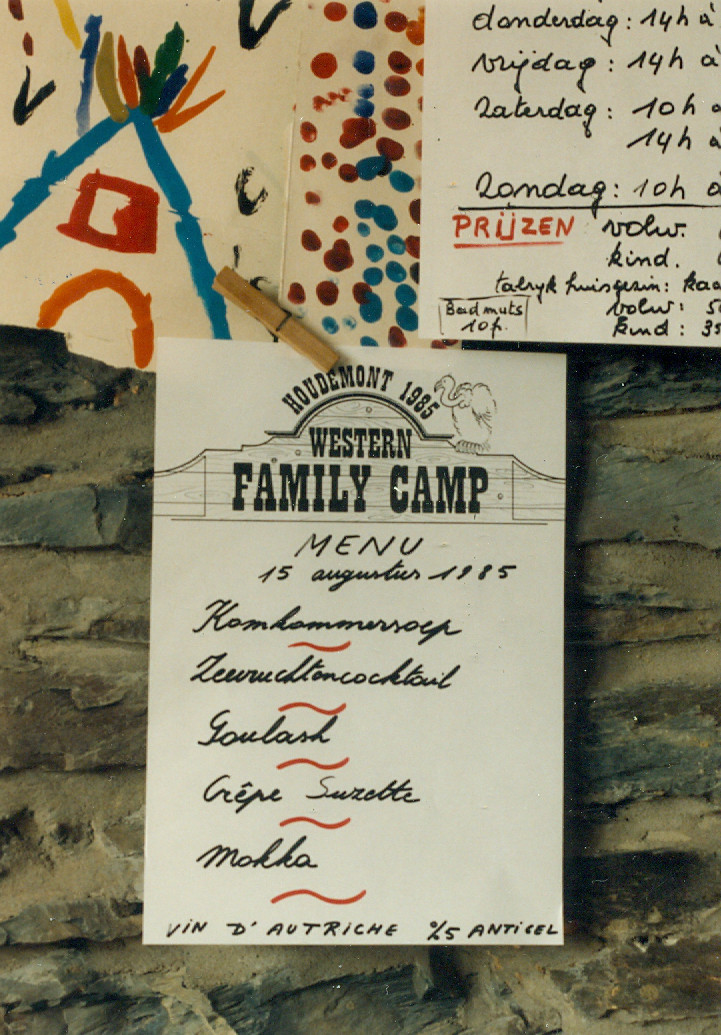 donderdag: 14h à
vrijdag: 14h à
Zaterdag: 10h à
14h à
Zondag: 10h à
PRIJZEN volw.
kind.
talryk huisgezin: kaa
Badmuts volw: 50
10f. kind: 35
HOUDEMONT 1985
WESTERN
FAMILY CAMP
MENU
15 augustus 1985
Komkommersoep
Zeevruchtencocktail
Goulash
Crêpe Suzette
Mokka
VIN D'AUTRICHE ANTIGEL